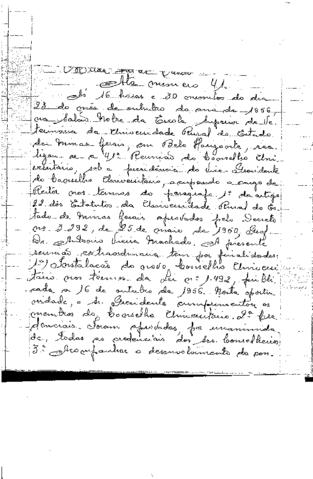 Ata número 41.
Às 16 horas e 30 minutos do dia
23 do mês de outubro do ano de 1956
no Salão Nobre da Escola Superior de Ve-
terinária da Universidade Rural do Estado
de Minas Gerais, em Belo Horizonte, rea-
lizou-se a 41ª Reunião do Conselho Uni-
versitário, sob a presidência do Vice-Presidente
do Conselho Universitário, ocupando o cargo de
Reitor nos termos do parágrafo 1º do artigo
22 dos Estatutos da Universidade Rural do Es-
tado de Minas Gerais aprovados pelo Decreto
nº 3.292, de 25 de maio de 1950, Prof.
Dr. Antonio Vieira Machado. A presente
reunião extraordinária tem por finalidades:
1º) Instalação do novo Conselho Universi-
tário nos termos da Lei nº 1.492, publi-
cada a 16 de outubro de 1956. Nesta oportu-
nidade, o sr. Presidente cumprimentou os
membros do Conselho Universitário. 2º Cre-
denciais. Foram aprovadas, por unanimida-
de, todas as credenciais dos srs. Conselheiros
3º Acompanhar o desenvolvimento do con-